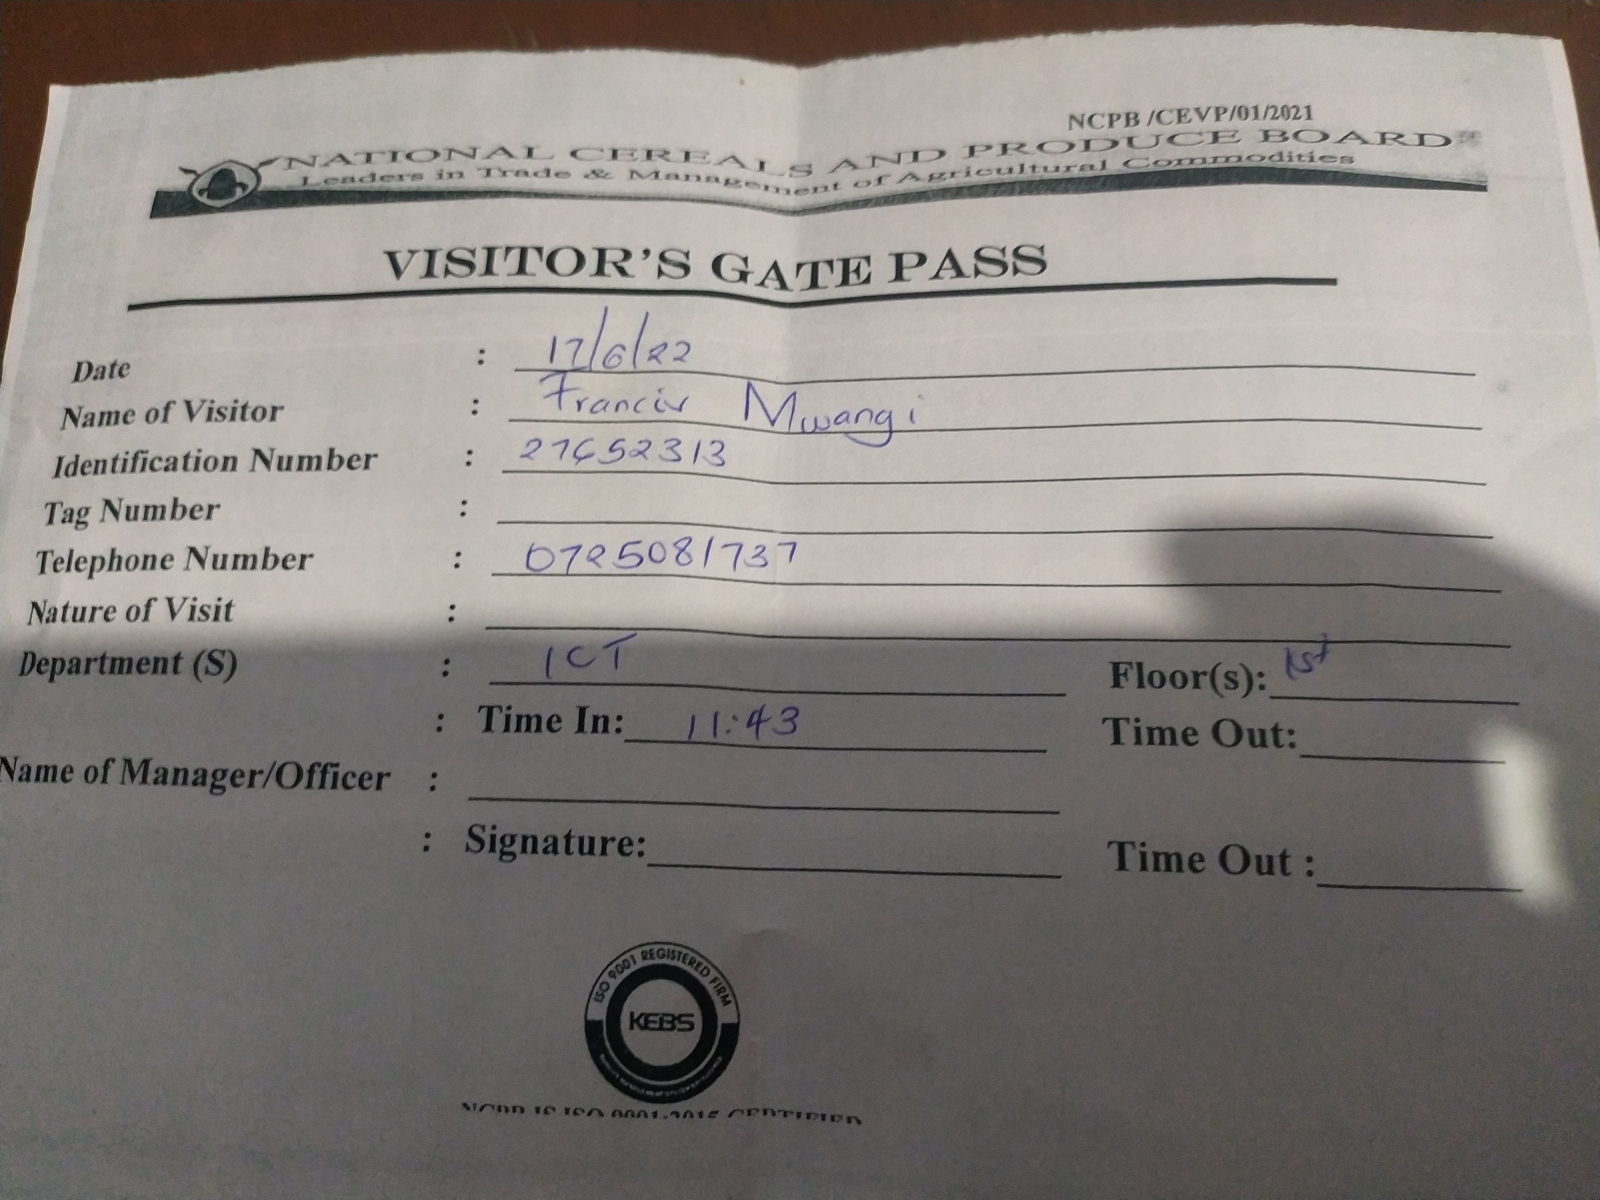 NCPB /CEVP/01/2021
NATIONAL CEREALS AND PRODUCE BOARD
Leaders in Trade & Management of Agricultural Commodities
VISITOR'S GATE PASS
Date : 17/6/22
Name of Visitor : Francis Mwangi
Identification Number : 27652313
Tag Number :
Telephone Number : 0725081737
Nature of Visit :
Department (S) : ICT Floor(s): 1st
: Time In: 11:43 Time Out:
Name of Manager/Officer :
: Signature: Time Out :
ISO 9001 REGISTERED FIRM
KEBS